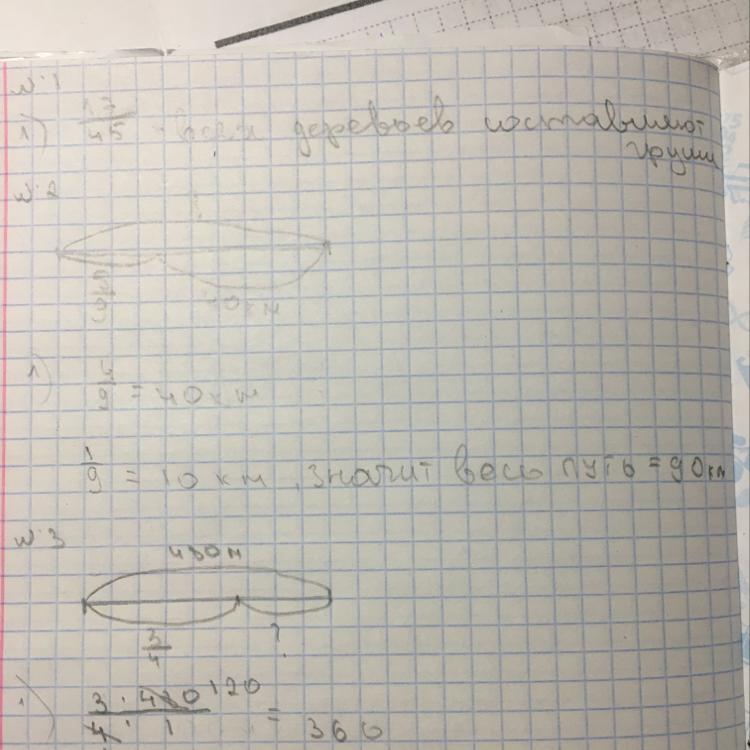 №1
1) 17/45 - всех деревьев составляют
груши
№2
5/9
40км
1) 4/9 = 40км
1/9 = 10 км, значит весь путь = 90км
№3
480м
3/4 ?
1) 3 · 480 120 / 4 · 1 = 360